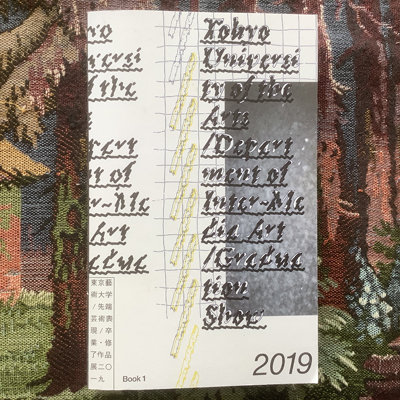 yo
versi
f the
part
nt of
r-Me
Art
adua
Tokyo
Universi
ty of the
Arts
/Depart
ment of
Inter-Me
dia Art
/Gradua
tion
Show
東京藝
術大学
/先端
芸術表
現/卒
業・修
了作品
展二〇
一九
Book 1
2019